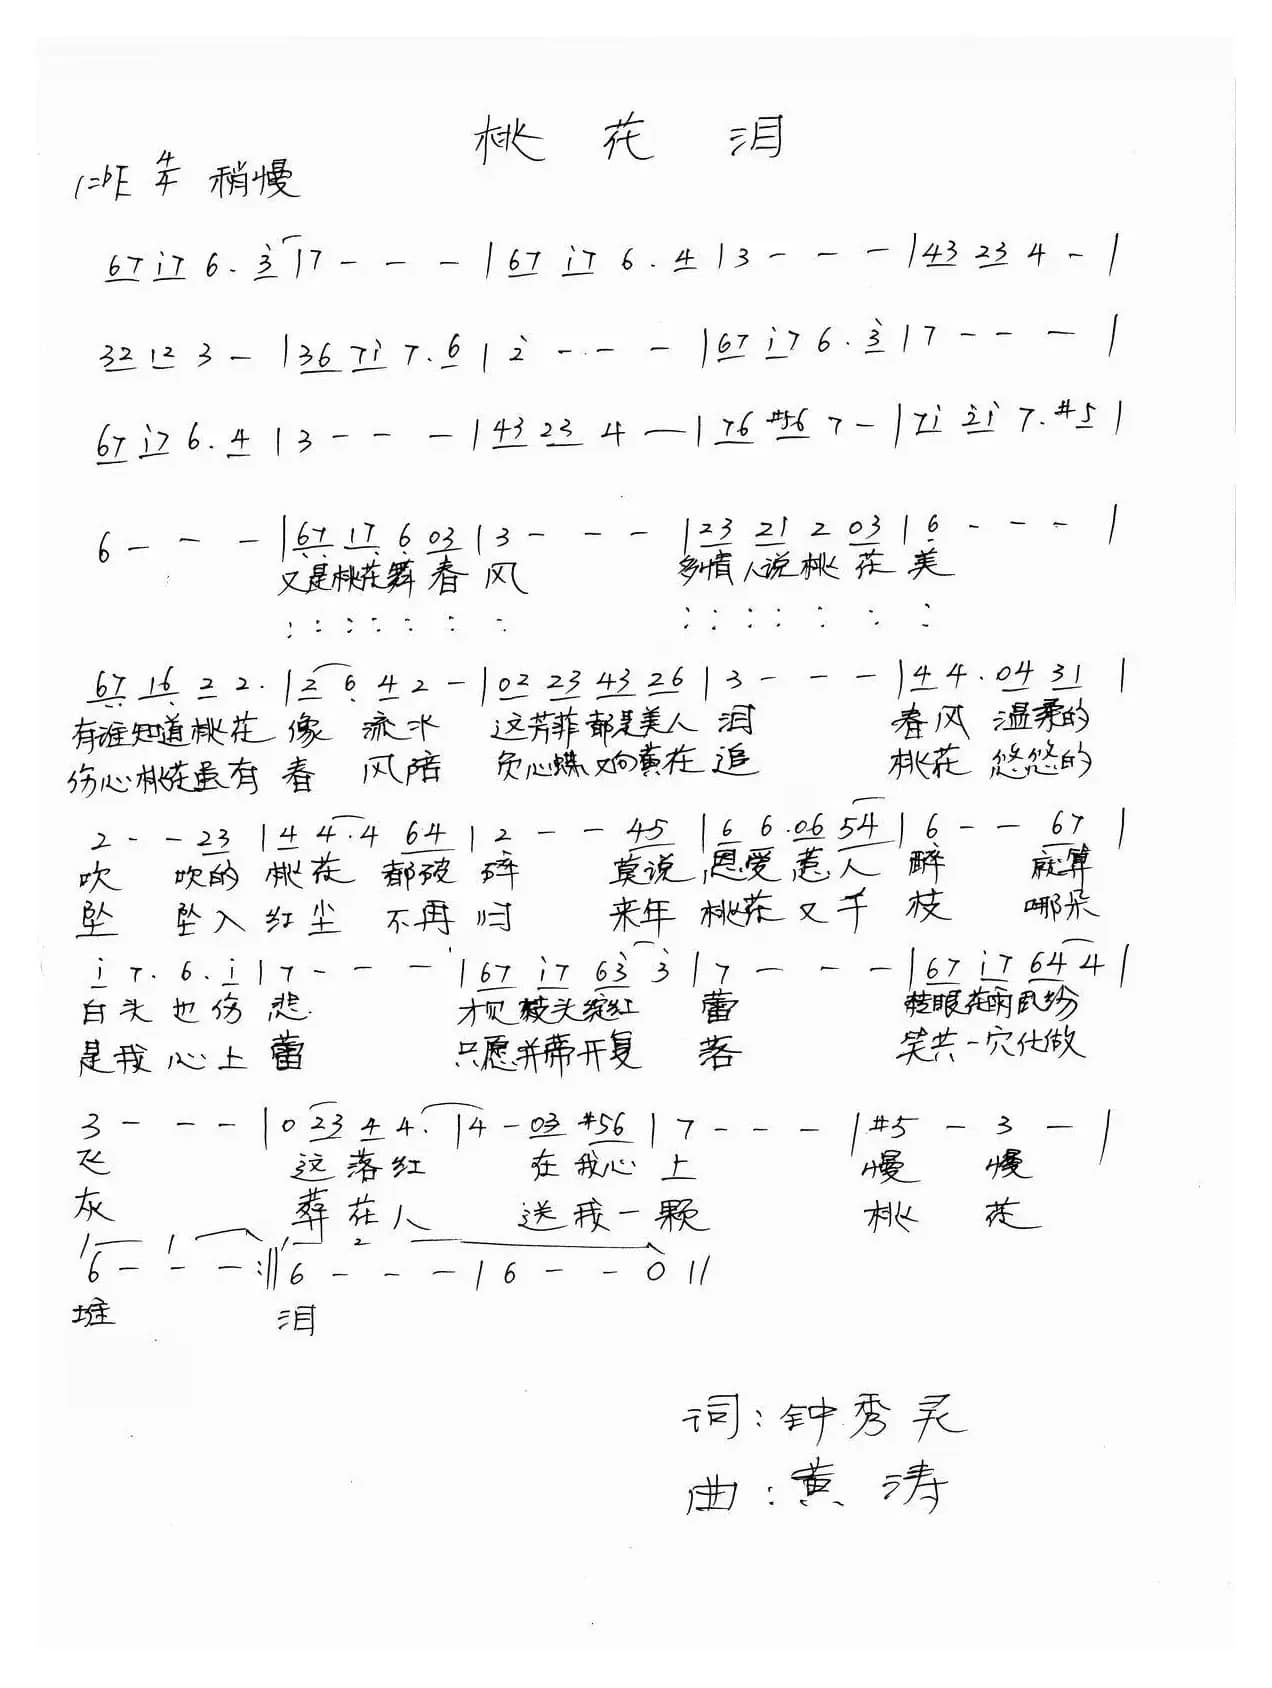 桃花泪
1=bE 4/4 稍慢
67 i7 6. 3 | 7 - - - | 67 i7 6. 4 | 3 - - - | 43 23 4 - |
32 12 3 - | 36 7i 7. 6 | 2 - - - | 67 i7 6. 3 | 7 - - - |
67 i7 6. 4 | 3 - - - | 43 23 4 — | 76 #56 7 - | 7i 2i 7. #5 |
6 - - - | 67 17 6 03 | 3 - - - | 23 21 2 03 | 6 - - - |
又是桃花舞春风 多情人说桃花美
: : : : : : : : : : : : : :
67 16 2 2. | 2 6 4 2 - | 02 23 43 26 | 3 - - - | 4 4. 04 31 |
有谁知道桃花像流水 这芳菲都是美人泪 春风温柔的
伤心桃花虽有春风陪 负心蝶又向黄花追 桃花悠悠的
2 - - 23 | 4 4. 4 64 | 2 - - 45 | 6 6. 06 54 | 6 - - 67 |
吹 吹的桃花都破碎 莫说恩爱惹人醉 就算
坠 坠入红尘不再归 来年桃花又千枝 哪朵
i 7. 6. i | 7 - - - | 67 i7 63 3 | 7 - - - | 67 i7 64 4 |
白头也伤悲 才见枝头绽红蕾 转眼花雨乱纷
是我心上蕾 只愿并蒂开复落 笑共一穴仕做
3 - - - | 0 23 4 4. | 4 - 03 #56 | 7 - - - | #5 - 3 - |
飞 这落红 在我心上 慢慢
灰 葬花人 送我一颗 桃花
1 2
6 - - - :|| 6 - - - | 6 - - 0 ||
堆 泪
词:钟秀灵
曲:黄涛